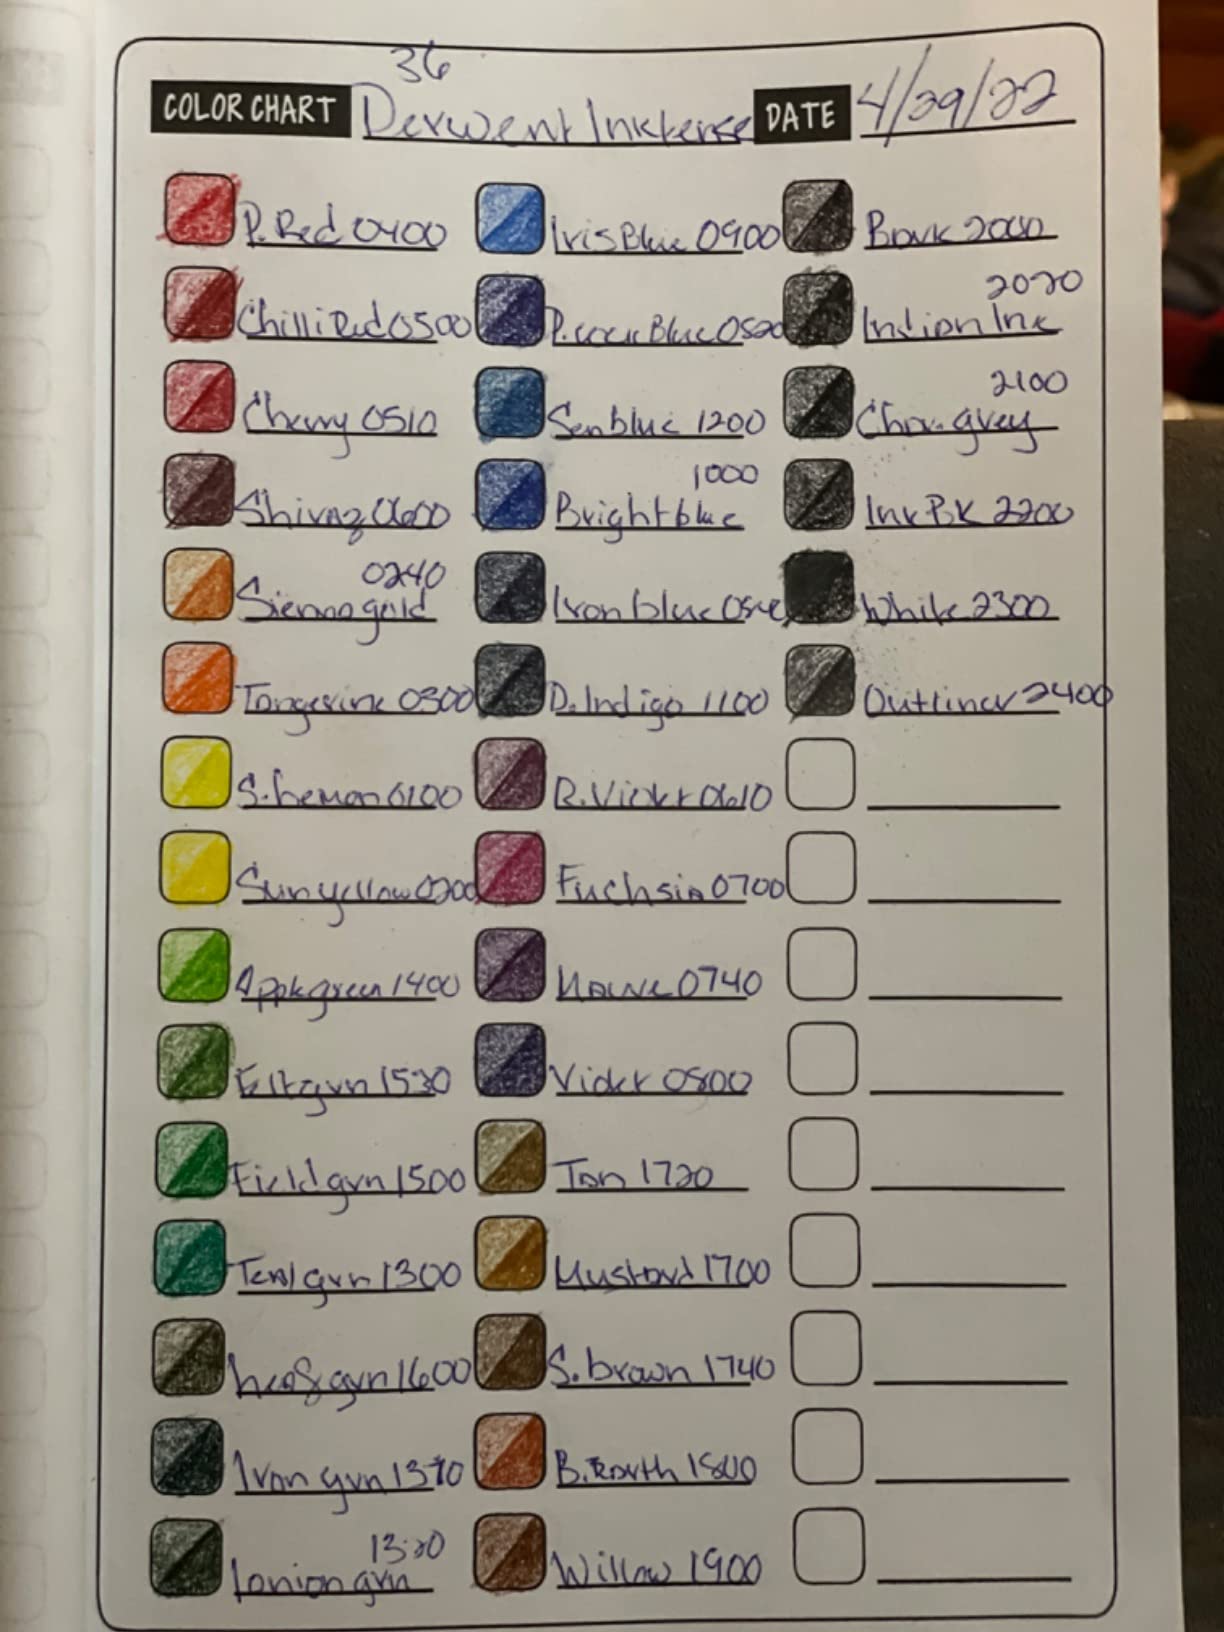 36
COLOR CHART Derwent Inktense DATE 4/29/22
P. Red 0400
Chilli Red 0500
Cherry 0510
Shiraz 0600
0240
Sienna gold
Tangerine 0300
S. Lemon 0100
Sun yellow 0200
Apple green 1400
Felt grn 1530
Field grn 1500
Teal grn 1300
Leaf grn 1600
Iron grn 1310
1320
Ionian grn
Iris Blue 0900
P.cock Blue 0820
Sea blue 1200
1000
Bright blue
Iron blue
D. Indigo 1100
R. Violet 0610
Fuchsia 0700
Mauve 0740
Violet 0800
Tan 1720
Mustard 1700
S. brown 1740
B. Earth 1800
Willow 1900
Bark 2000
2020
Indian Ink
2100
Char. grey
Ink BK 2200
White 2300
Outliner 2400